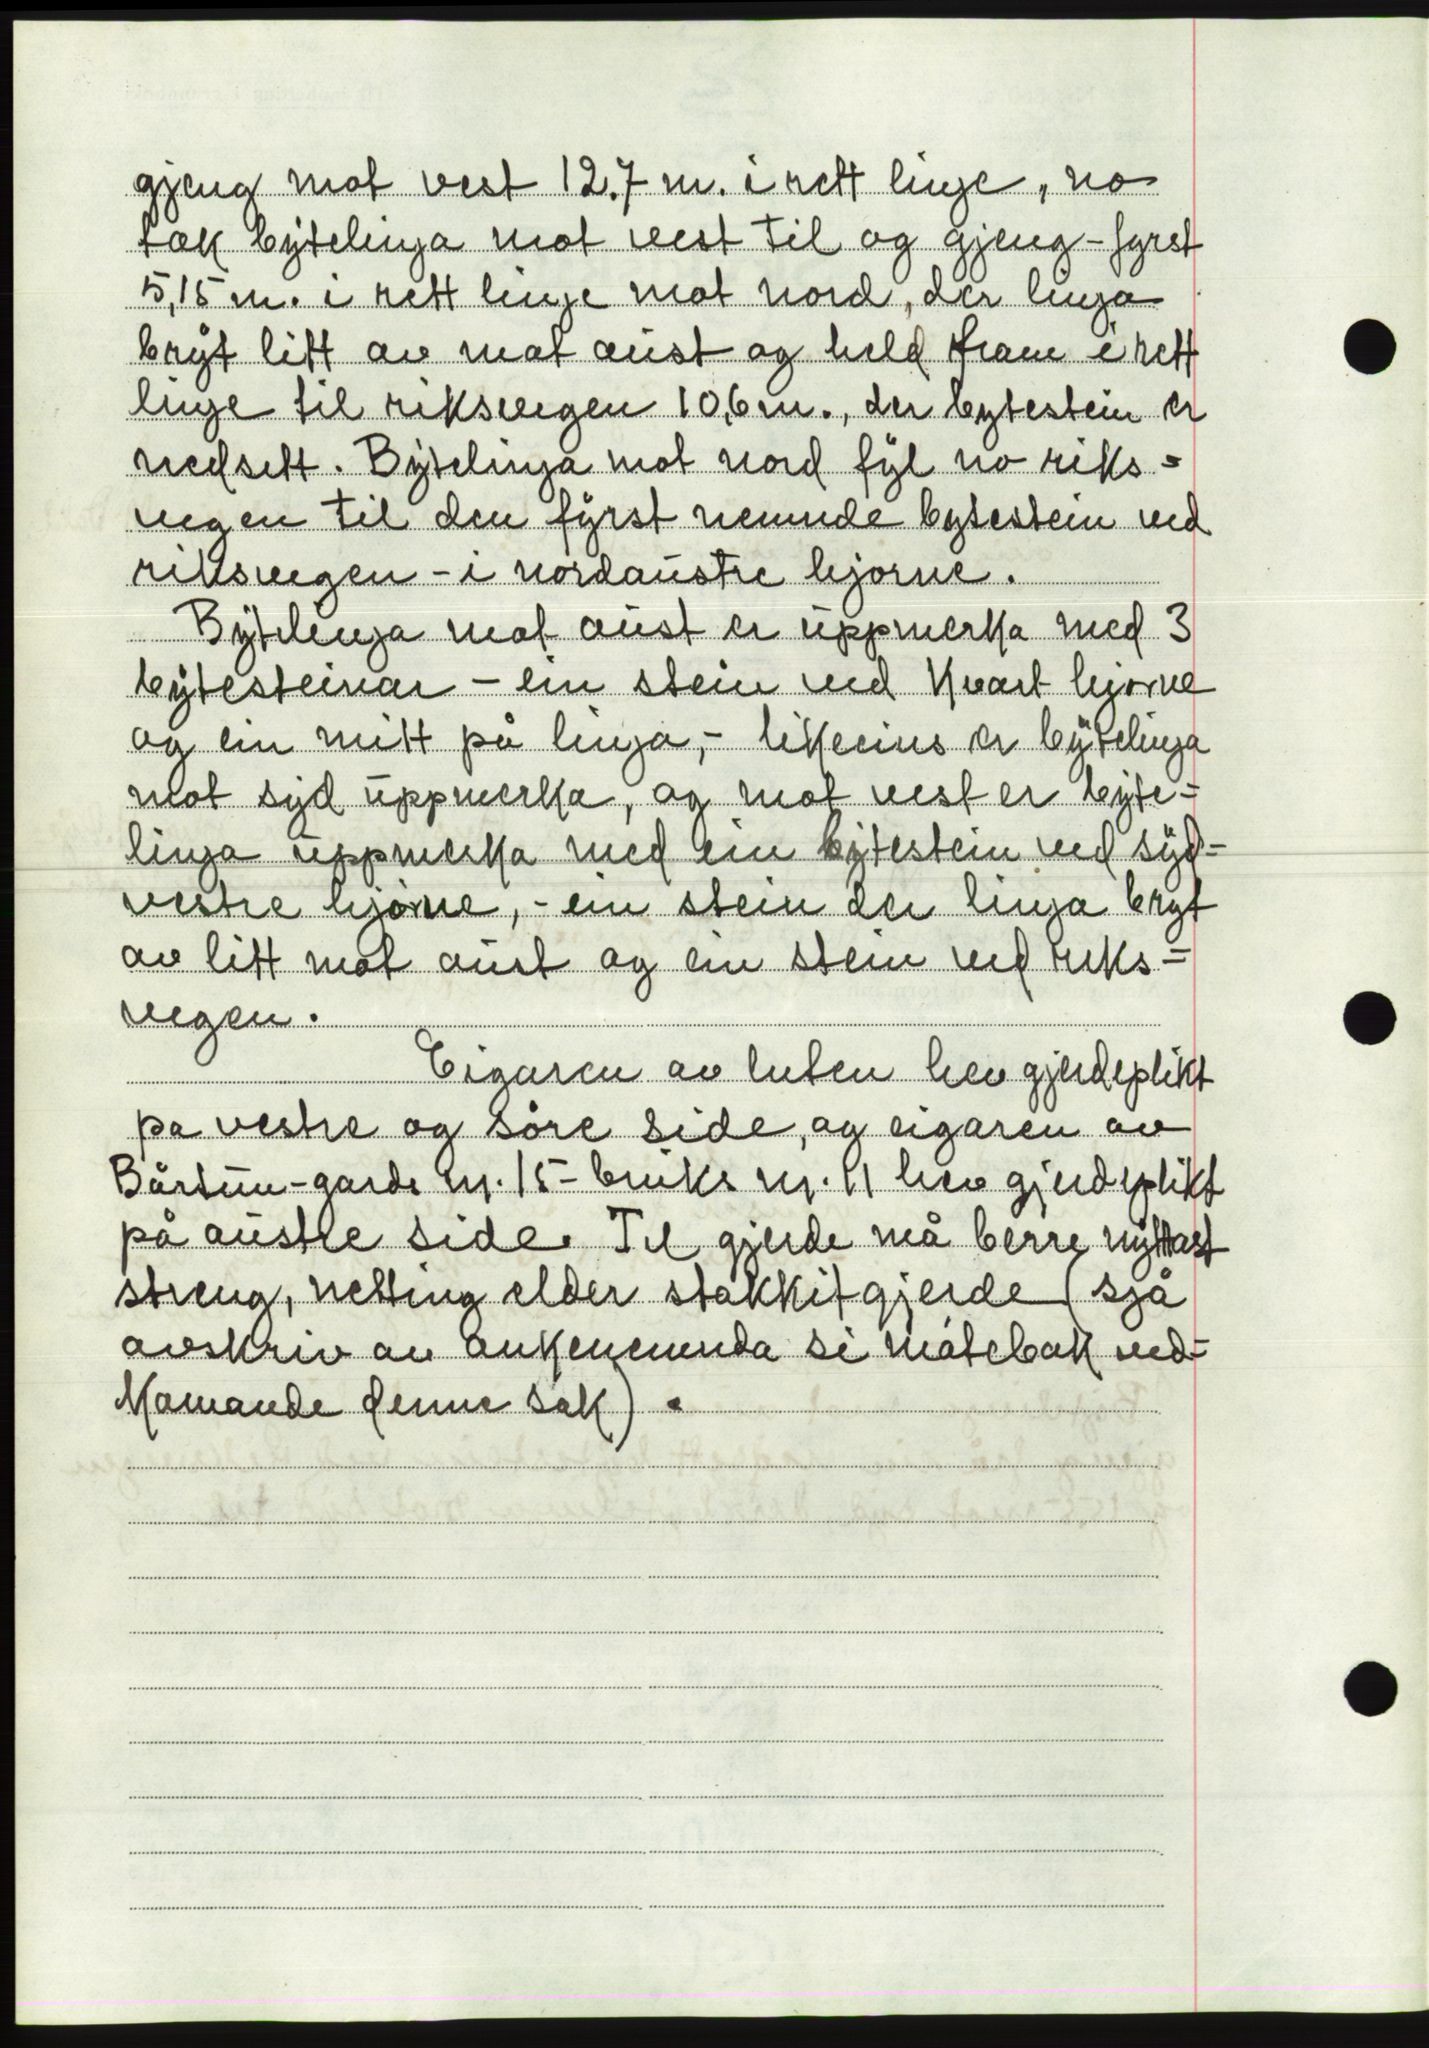 gjeng mot vest 12.7 m. i rett linje, no
tek býtelinja mot vest til og gjeng - fyrst
5,15 m. i rett linje mot nord, der linja
brýt litt av mot aust og held fram i rett
linje til riksvegen 10,6 m., der bytestein er
nedsett. Býtelinja mot nord fýl no riks=
vegen til den fýrst nemnde bytestein ved
riksvegen - i nordaustre hjorne.
Býtelinja mot aust er uppmerka med 3
býtesteinar - ein stein ved kvart hjorne
og ein mitt på linja, - likeeins er býtelinja
mot syd uppmerka, og mot vest er býte=
linja uppmerka med ein býtestein ved syd=
vestre hjørne, - ein stein der linja bryt
av litt mot aust og ein stein ved riks=
vegen.
Eigaren av luten hev gjerdeplikt
pa vestre og söre side, og eigaren av
Bårtun - gards nr. 15 - bruks nr. 11 hev gjerdeplikt
på austre side. Til gjerde må berre nyttast
streng, netting elder stakkitgjerde (sjå
avskriv av ankenemnda si møtebok ved=
komande denne sak).